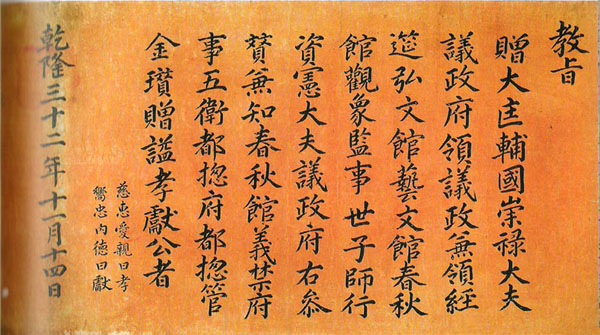 教旨
贈大匡輔國崇祿大夫
議政府領議政兼領經
筵弘文館藝文館春秋
館觀象監事世子師行
資憲大夫議政府右參
賛兼知春秋館義禁府
事五衛都揔府都揔管
金瓉贈諡孝獻公者
慈惠愛親曰孝
嚮忠內德曰獻
乾隆三十二年十一月十四日